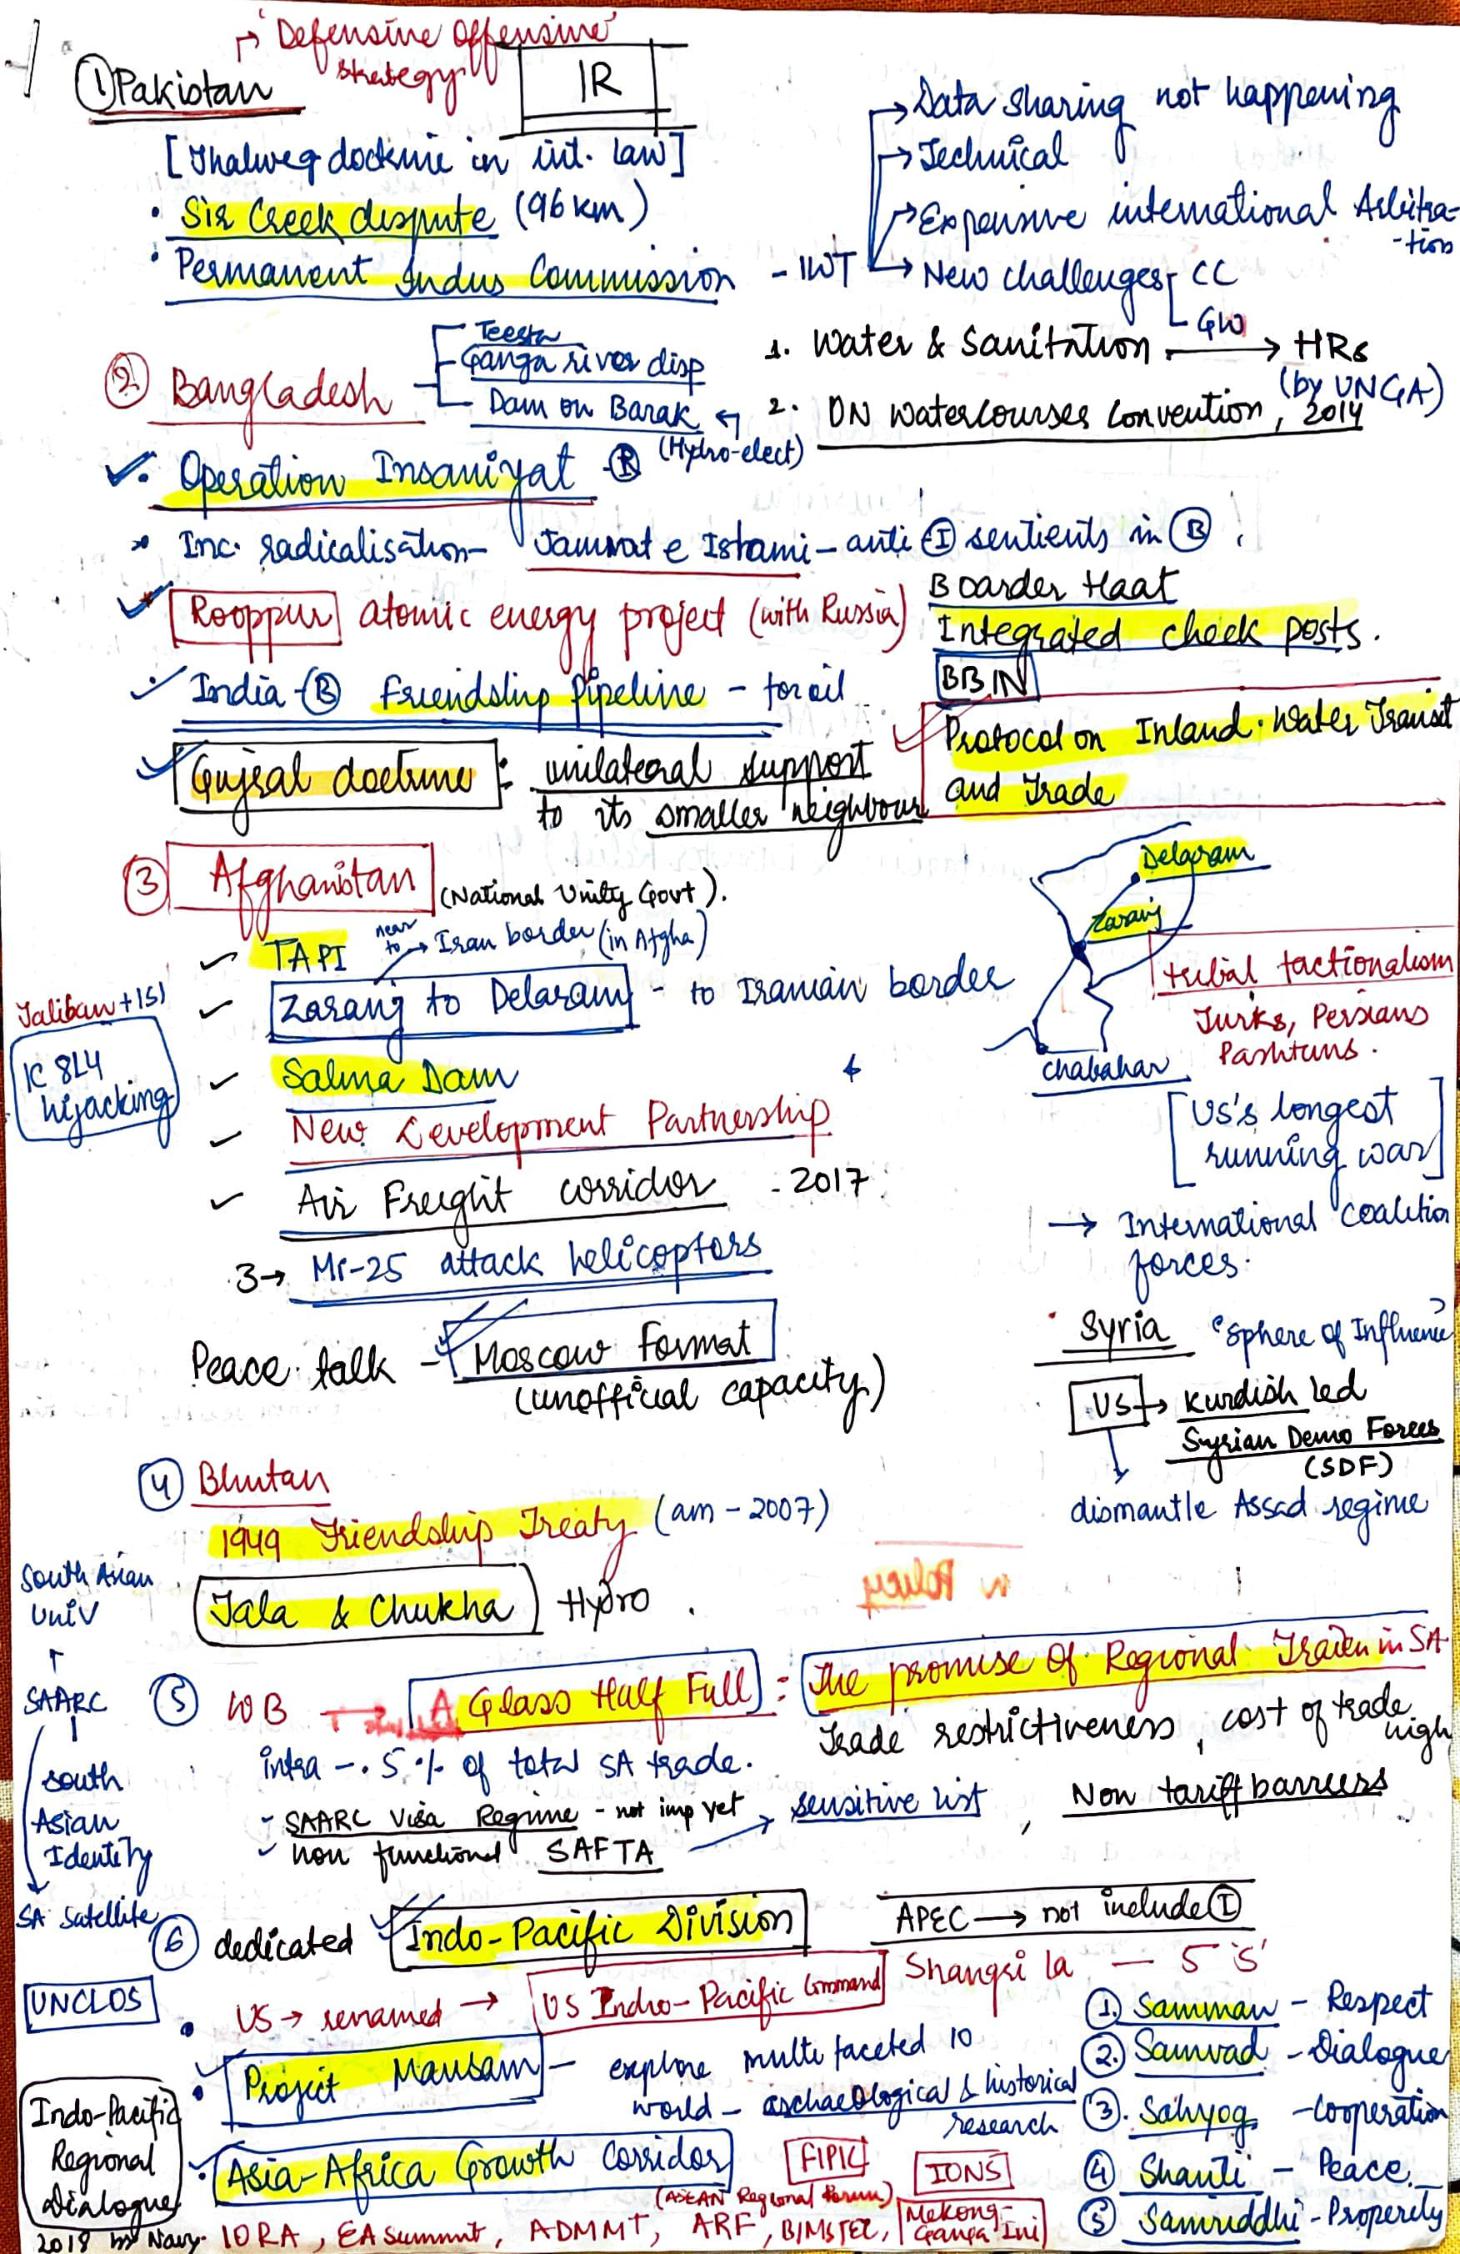 'Defensive Offensive'
strategy
IR
① Pakistan
[Thalweg doctrine in int. law]
• Sir Creek dispute (96 km)
• Permanent Indus Commission - IWT
→ Data sharing not happening
→ Technical
→ Expensive international Arbitra-
-tion
→ New challenges - CC
- GW
1. Water & Sanitation → HRs
(by UNGA)
2. UN Watercourses Convention, 2014
② Bangladesh
Teesta
Ganga river disp
Dam on Barak
(Hydro-elect)
• Operation Insaniyat - Ⓡ
* Inc. radicalisation - Jamaat e Islami - anti Ⓘ sentients in Ⓑ.
Rooppur atomic energy project (with Russia)
Boarder Haat
Integrated check posts.
BBIN
India - Ⓑ Friendship Pipeline - for oil
Protocol on Inland Water Transit
and Trade
Gujral doctrine : unilateral support
to its smaller neighbour
③ Afghanistan (National Unity Govt).
✓ TAPI
near to → Iran border (in Afgha)
✓ Zaranj to Delaram - to Iranian border
✓ Salma Dam
✓ New Development Partnership
✓ Air Freight corridor - 2017
3 → Mi-25 attack helicopters
Peace talk - Moscow Format
(unofficial capacity)
Taliban + ISI
IC 814
hijacking
Delaram
Zaranj
Chabahar
tribal factionalism
Turks, Persians
Pashtuns.
[US's longest
running war]
→ International Coalition
forces.
• Syria 'Sphere of Influence'
US → Kurdish led
Syrian Demo Forces
(SDF)
dismantle Assad regime
④ Bhutan
1949 Friendship Treaty (am - 2007)
Tala & Chukha Hydro.
South Asian
Univ
SAARC
South
Asian
Identity
SA Satellite
⑤ WB → A Glass Half Full : The promise of Regional Traden in SA
Trade restrictiveness, cost of trade
high
intra - .5% of total SA trade.
- SAARC Visa Regime - not imp yet
✓ non functional SAFTA → sensitive list, Non tariff barriers
⑥ dedicated Indo-Pacific Division
APEC → not include Ⓘ
• US → renamed → US Indo-Pacific Command
Shangri la — 5 'S'
① Samman - Respect
② Samvad - Dialogue
③. Sahyog - Cooperation
④ Shanti - Peace.
⑤ Samriddhi - Properity
UNCLOS
• Project Mausam - explore multi faceted IO
world - archaeological & historical
research
• Asia-Africa Growth Corridor
FIPIC
IONS
(ASEAN Regional Forum)
Indo-Pacific
Regional
Dialogue
2018 by Navy.
IORA, EA summit, ADMMT, ARF, BIMSTEC, Mekong-
Ganga Ini